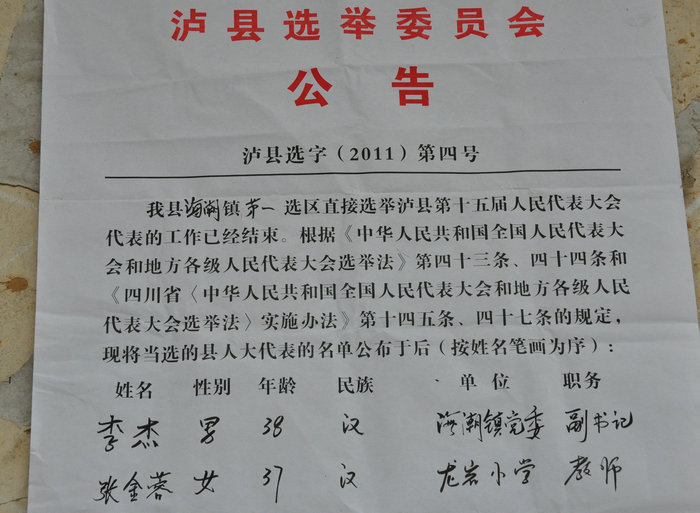 泸县选举委员会
公告
泸县选字（2011）第四号
我县海潮镇第一选区直接选举泸县第十五届人民代表大会
代表的工作已经结束。根据《中华人民共和国全国人民代表大
会和地方各级人民代表大会选举法》第四十三条、四十四条和
《四川省〈中华人民共和国全国人民代表大会和地方各级人民
代表大会选举法〉实施办法》第十四五条、四十七条的规定，
现将当选的县人大代表的名单公布于后（按姓名笔画为序）：
姓名 性别 年龄 民族 单位 职务
李杰 男 38 汉 海潮镇党委 副书记
张金蓉 女 37 汉 龙岩小学 教师